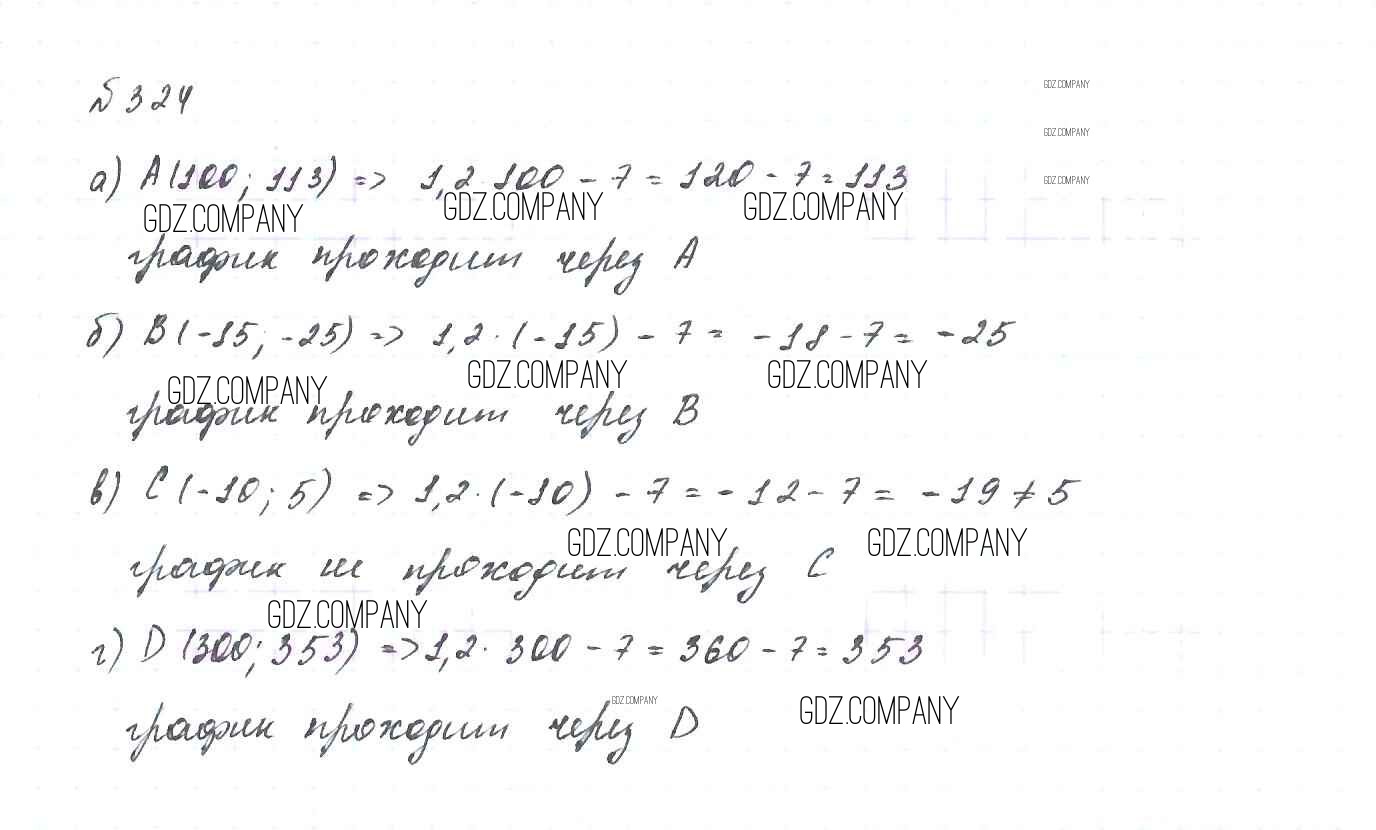 №324
GDZ.COMPANY
GDZ.COMPANY
GDZ.COMPANY
а) A(100; 113) => 1,2·100 - 7 = 120 - 7 = 113
GDZ.COMPANY GDZ.COMPANY GDZ.COMPANY
график проходит через A
б) B(-15; -25) => 1,2·(-15) - 7 = -18 - 7 = -25
GDZ.COMPANY GDZ.COMPANY GDZ.COMPANY
график проходит через B
в) C(-10; 5) => 1,2·(-10) - 7 = -12 - 7 = -19 ≠ 5
GDZ.COMPANY GDZ.COMPANY
график не проходит через C
GDZ.COMPANY
г) D(300; 353) => 1,2·300 - 7 = 360 - 7 = 353
GDZ.COMPANY GDZ.COMPANY
график проходит через D